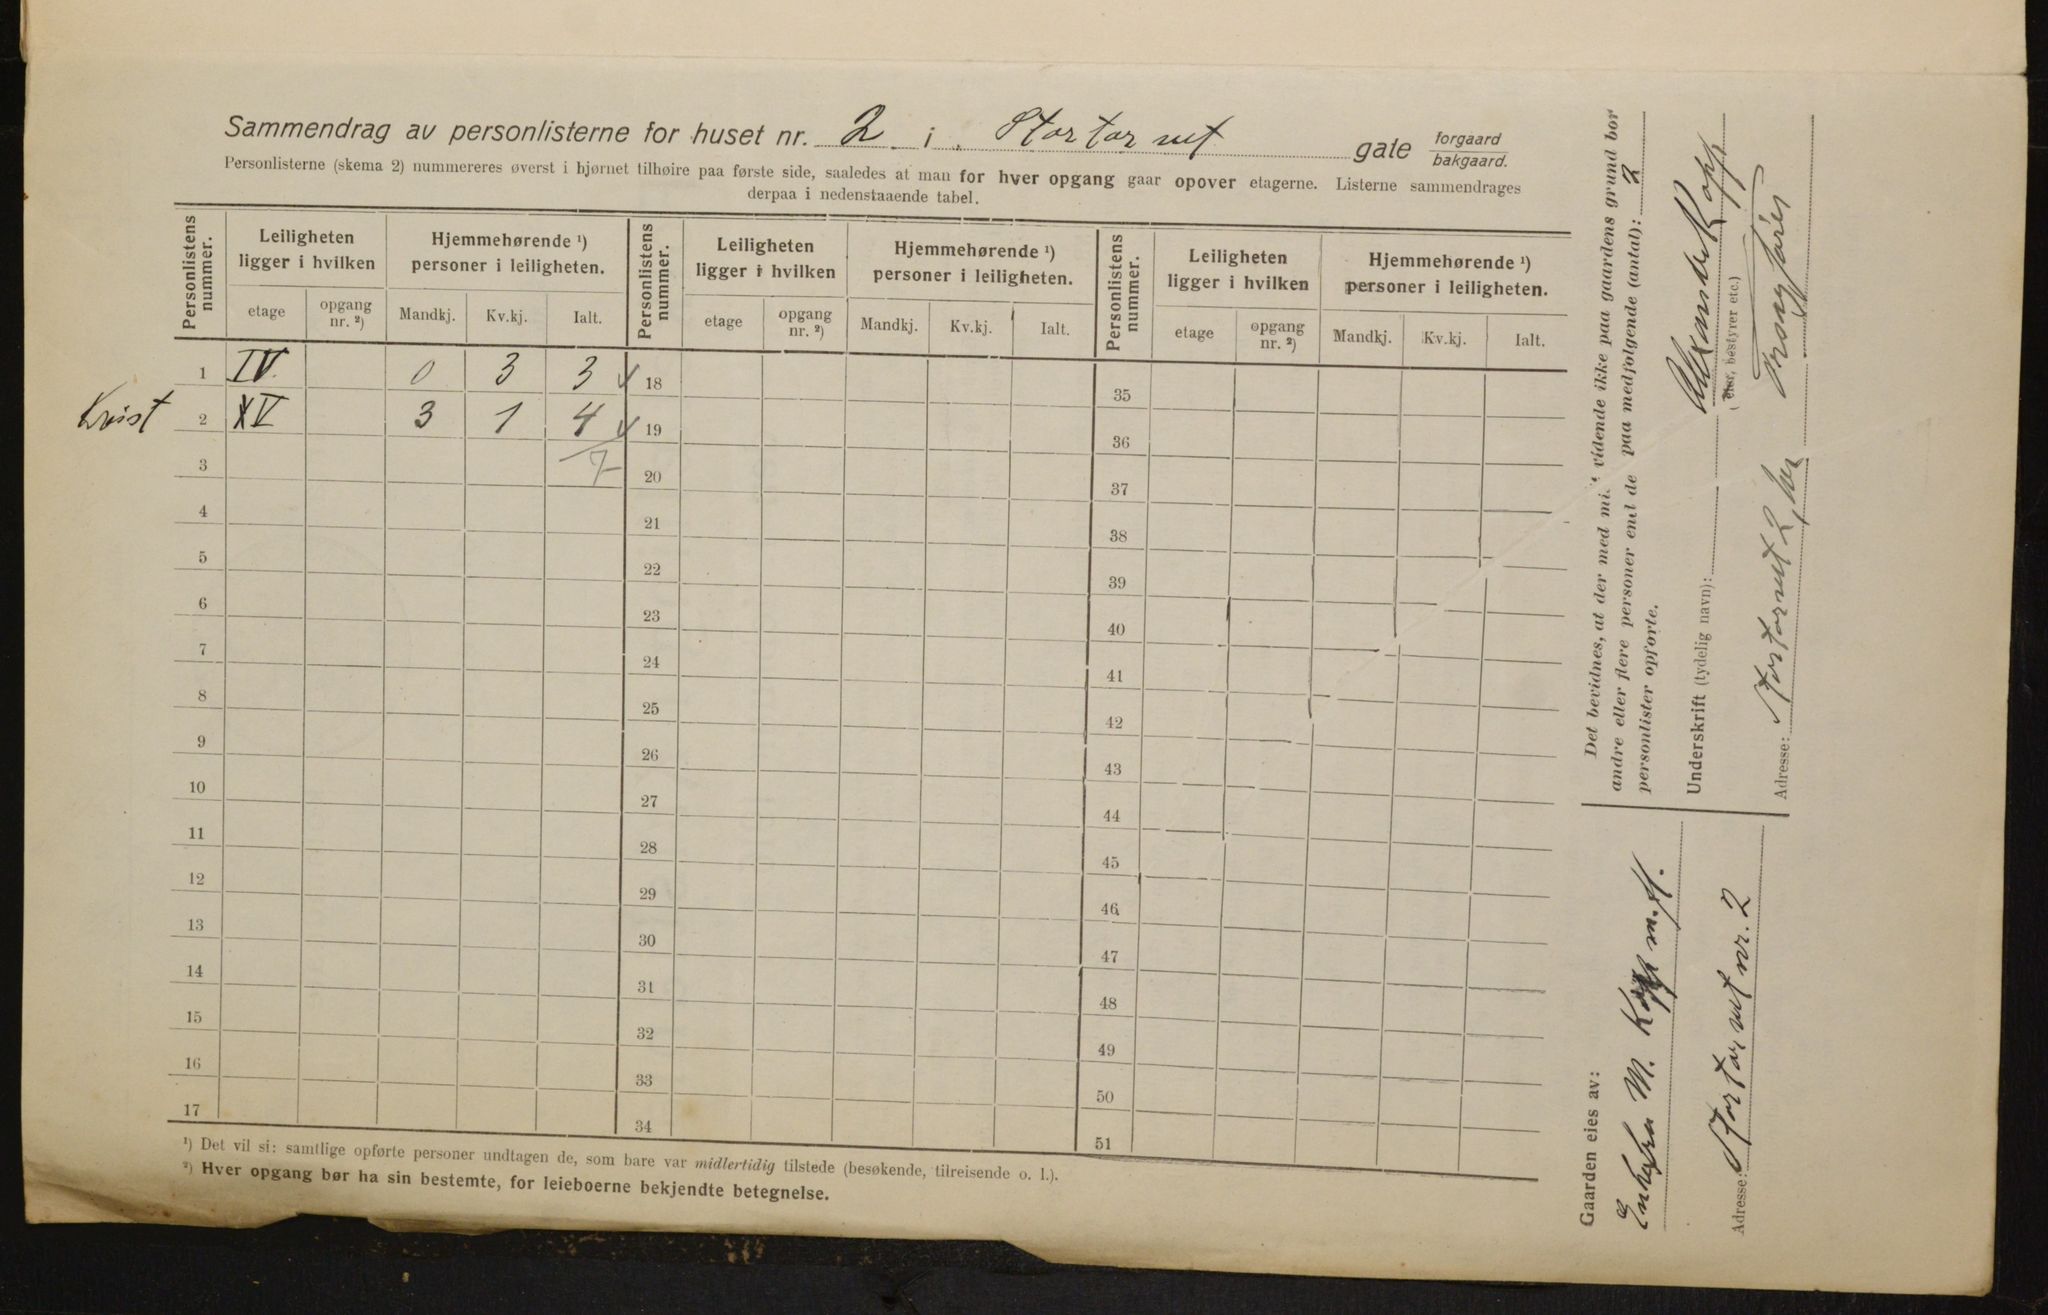 Sammendrag av personlisterne for huset nr. 2 i Stortorvet gate forgaard bakgaard.
Personlisterne (skema 2) nummereres øverst i hjørnet tilhøire paa første side, saaledes at man for hver opgang gaar opover etagerne. Listerne sammendrages
derpaa i nedenstaaende tabel.
Personlistens nummer. Leiligheten ligger i hvilken Hjemmehørende ¹) personer i leiligheten. Personlistens nummer. Leiligheten ligger i hvilken Hjemmehørende ¹) personer i leiligheten. Personlistens nummer. Leiligheten ligger i hvilken Hjemmehørende ¹) personer i leiligheten.
etage opgang nr. ²) Mandkj. Kv.kj. Ialt. etage opgang nr. ²) Mandkj. Kv.kj. Ialt. etage opgang nr. ²) Mandkj. Kv.kj. Ialt.
1 IV. 0 3 3 18 35
Kvist 2 XV 3 1 4 19 36
3 7 20 37
4 21 38
5 22 39
6 23 40
7 24 41
8 25 42
9 26 43
10 27 44
11 28 45
12 29 46
13 30 47
14 31 48
15 32 49
16 33 50
17 34 51
¹) Det vil si: samtlige opførte personer undtagen de, som bare var midlertidig tilstede (besøkende, tilreisende o. l.).
²) Hver opgang bør ha sin bestemte, for leieboerne bekjendte betegnelse.
Det bevidnes, at der med mit vidende ikke paa gaardens grund bor
andre eller flere personer end de paa medfølgende (antal): 2
personlister opførte.
Underskrift (tydelig navn): Alexander Kopp
(eier, bestyrer etc.)
Adresse: Stortorvet 2
Gaarden eies av:
Enkefru M. Kopp m. fl.
Adresse: Stortorvet nr. 2